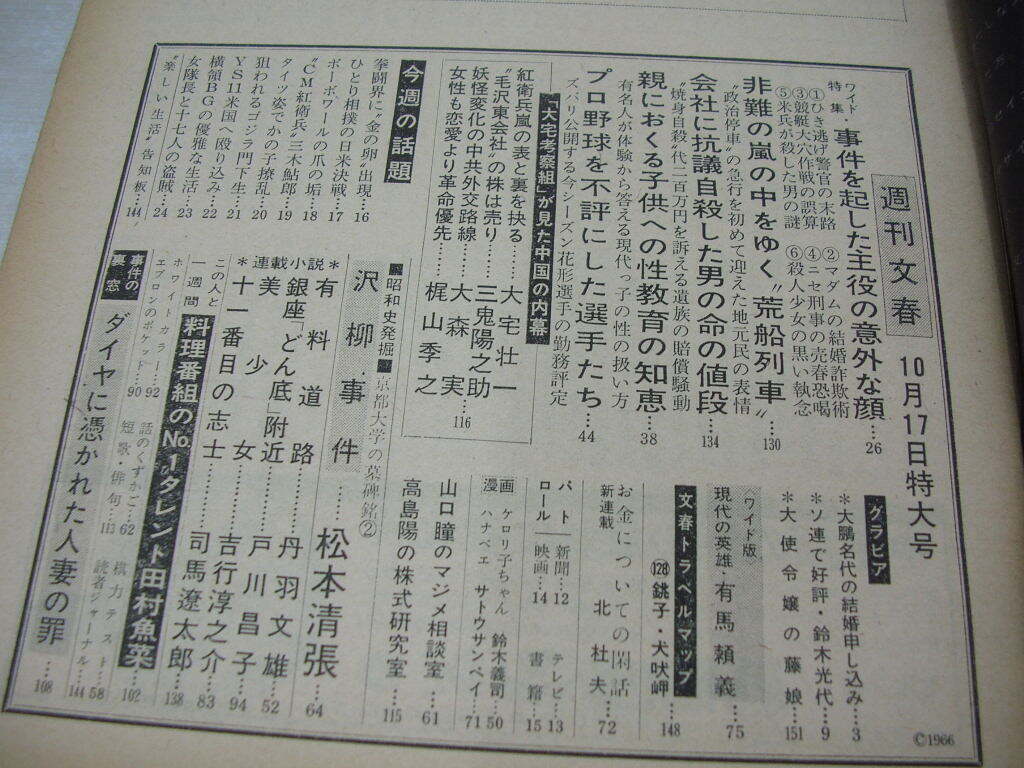 週刊文春
10月17日特大号
ワイド特集・事件を起した主役の意外な顔…26
①ひき逃げ警官の末路 ②マダムの結婚詐欺術
③競艇大穴作戦の誤算 ④ニセ刑事の売春恐喝
⑤米兵が殺した男の謎 ⑥殺人少女の黒い執念
非難の嵐の中をゆく〝荒船列車〟…130
〝政治停車〟の急行を初めて迎えた地元民の表情
会社に抗議自殺した男の命の値段…134
〝焼身自殺〟代二百万円を訴える遺族の賠償騒動
親におくる子供への性教育の知恵…38
有名人が体験から答える現代っ子の性の扱い方
プロ野球を不評にした選手たち…44
ズバリ公開する今シーズン花形選手の勤務評定
「大宅考察組」が見た中国の内幕
紅衛兵嵐の表と裏を抉る…大宅壮一
〝毛沢東会社〟の株は売り…三鬼陽之助
妖怪変化の中共外交路線…大森実
女性も恋愛より革命優先…梶山季之
116
今週の話題
拳闘界に〝金の卵〟出現…16
ひとり相撲の日米決戦…17
ボーボワールの爪の垢…18
〝CM紅衛兵〟三木鮎郎…19
タイツ姿でかの子撩乱…20
狙われるゴジラ門下生…21
YS11米国へ殴り込み…22
横領BGの優雅な生活…23
女隊長と十七人の盗賊…24
〝楽しい生活〟告知板…144
グラビア
＊大鵬名代の結婚申し込み…3
＊ソ連で好評・鈴木光代…9
＊大使令嬢の藤娘…151
〈ワイド版〉
現代の英雄・有馬頼義…75
文春トラベルマップ
(128)銚子・犬吠岬…148
お金についての閑話
新連載 北杜夫…72
パトロール
新聞…12 テレビ…13
映画…14 書籍…15
漫画
ケロリ子ちゃん 鈴木義司…50
ハナベエ サトウサンペイ…71
山口瞳のマジメ相談室…61
高島陽の株式研究室…115
昭和史発掘 京都大学の墓碑銘②
沢柳事件…松本清張…64
連載小説
＊有料道路…丹羽文雄…52
銀座「どん底」附近…戸川昌子…94
＊美少女…吉行淳之介…83
＊十一番目の志士…司馬遼太郎…138
この人と一週間
料理番組のNo.1タレント田村魚菜…102
ホワイトカラー…92
エプロンのポケット…90
話のくずかご…62
短歌・俳句…113
横力テスト…58
読者ジャーナル…144
事件の裏窓
ダイヤに憑かれた人妻の罪…108
©1966